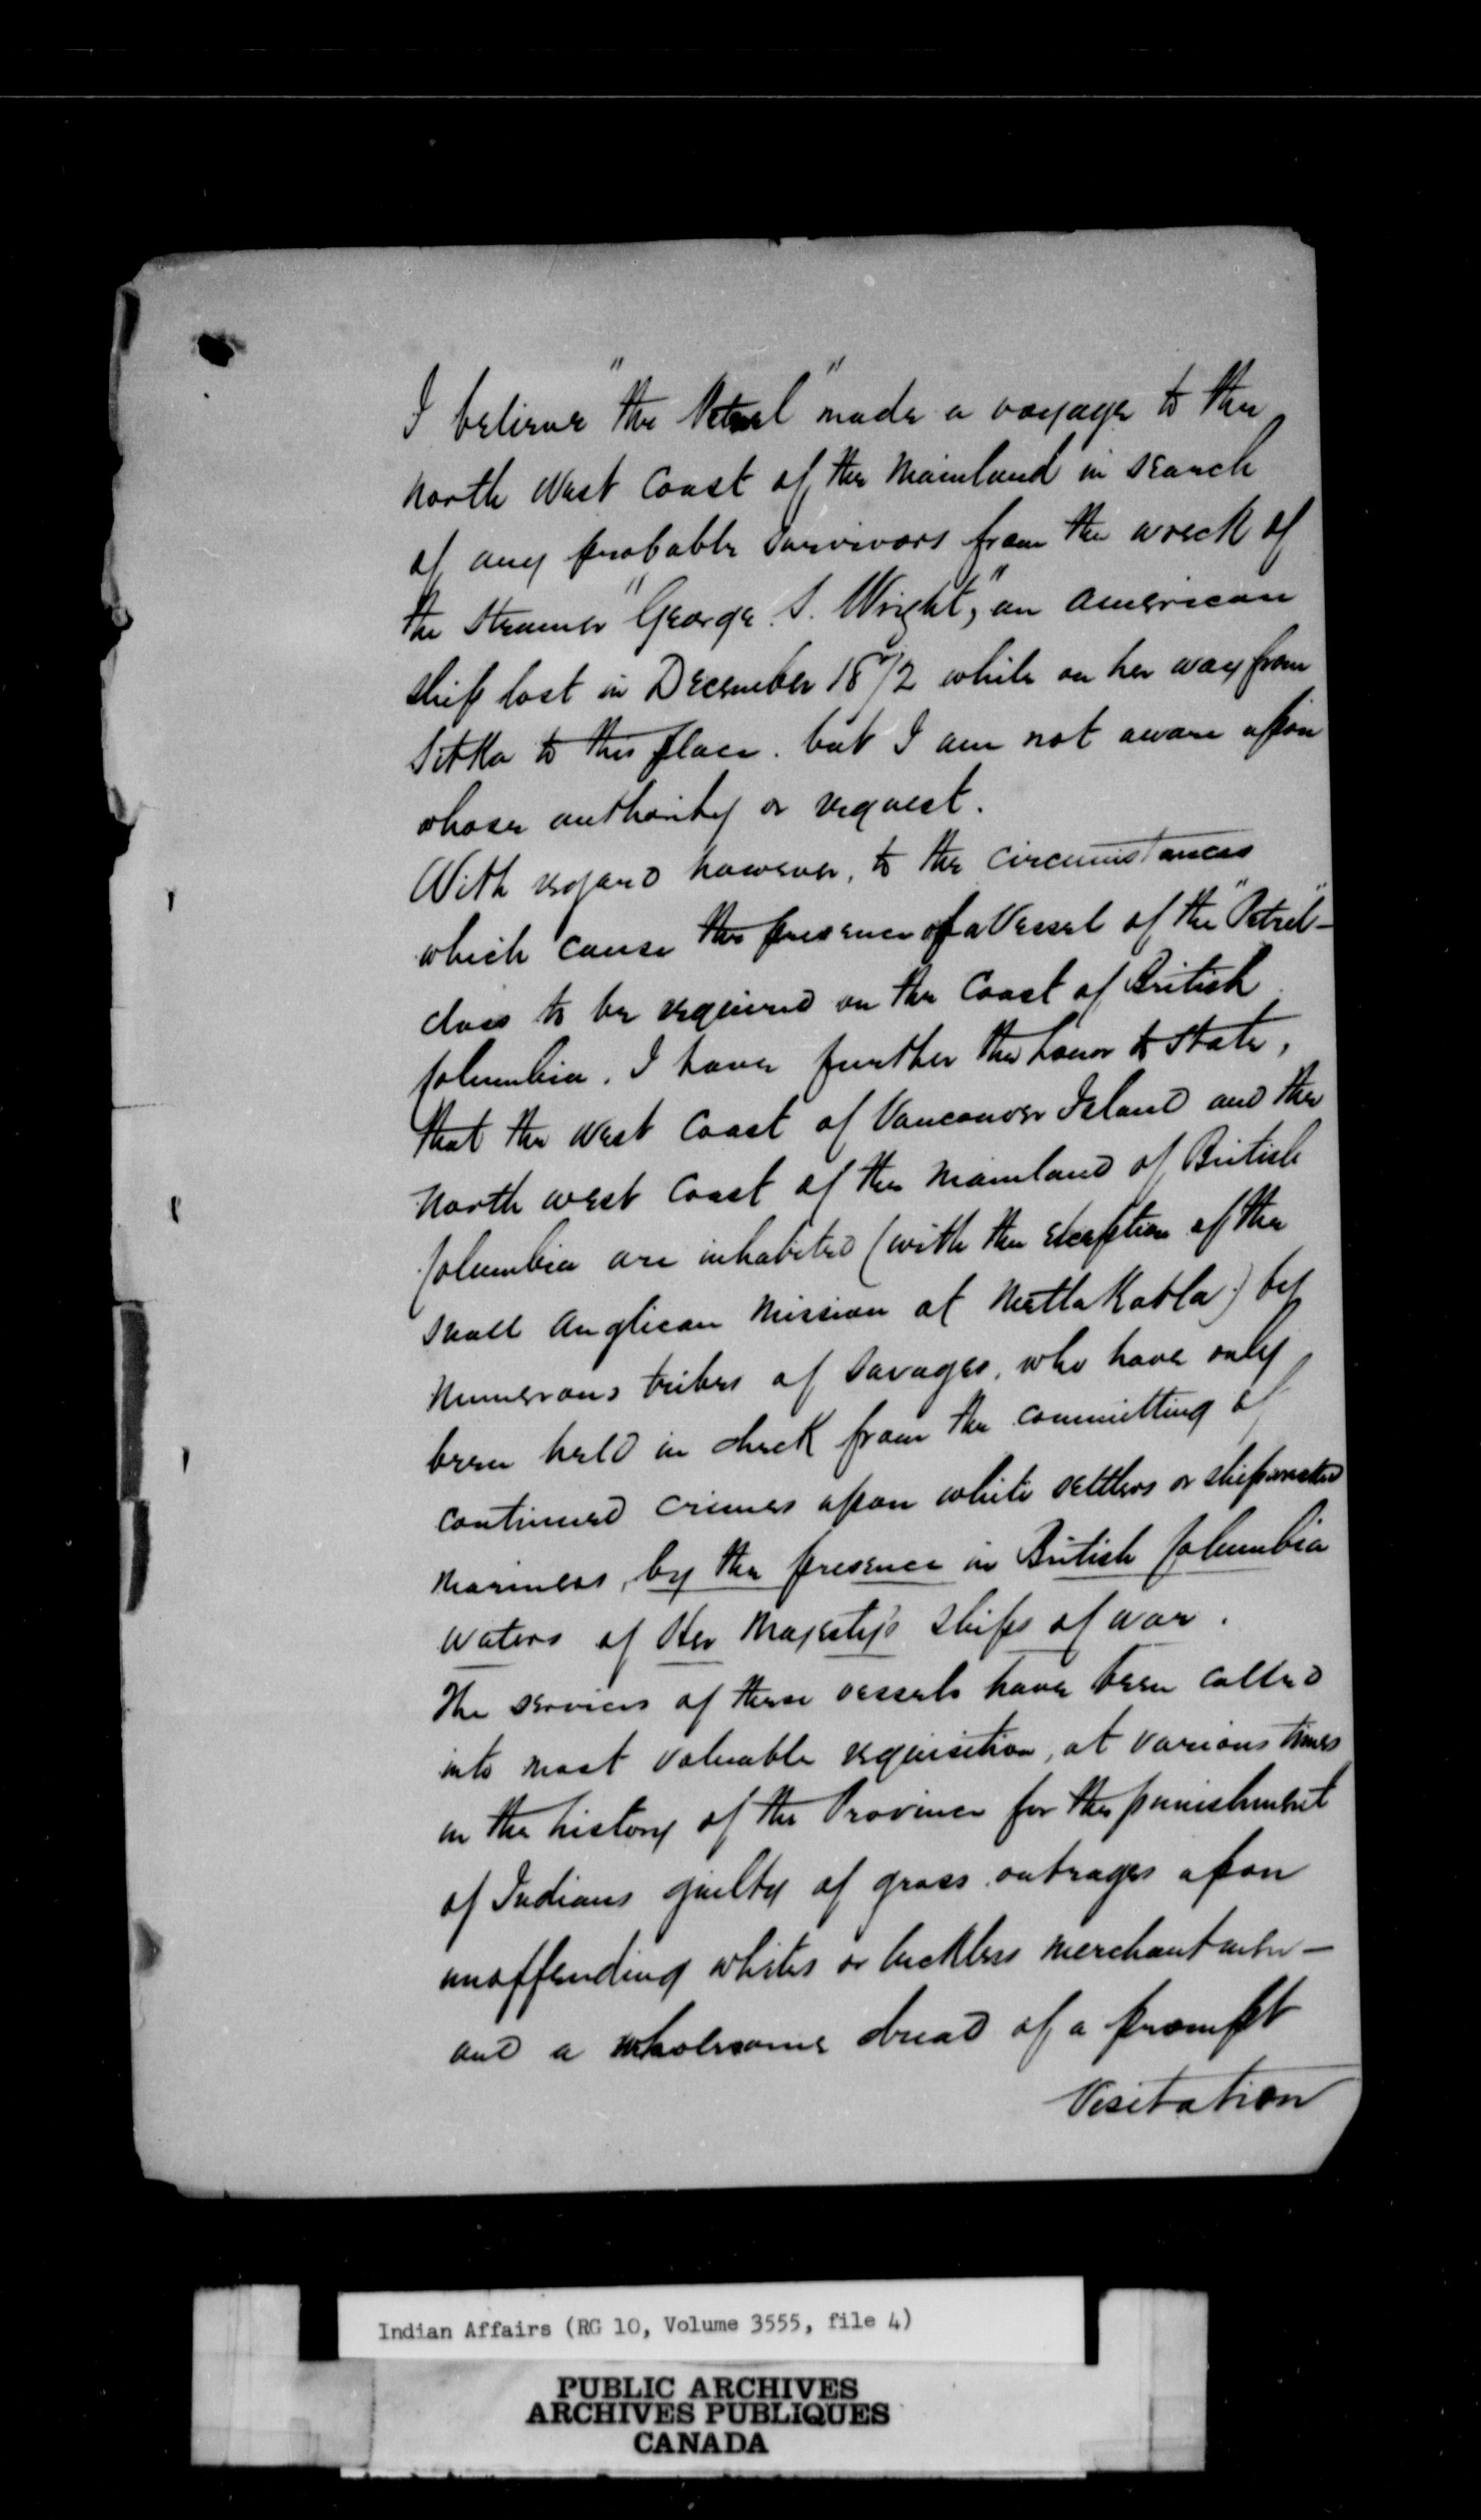 I believe "the Petrel" made a voyage to the
North West Coast of the Mainland in search
of any probable survivors from the wreck of
the Steamer "George S. Wright," an American
ship lost in December 1872 while on her way from
Sitka to this place. but I am not aware upon
whose authority or request.
With regard however, to the circumstances
which cause the presence of a Vessel of the "Petrel"-
class to be required on the Coast of British
Columbia. I have further the honor to state,
that the West Coast of Vancouver Island and the
North west Coast of the Mainland of British
Columbia are inhabited (with the exception of the
small Anglican Mission at Metlakatla) by
numerous tribes of Savages, who have only
been held in check from the committing of
continued crimes upon white settlers or shipwrecked
mariners, by the presence in British Columbia
waters of Her Majesty's ships of war.
The services of these vessels have been called
into most valuable requisition, at various times
in the history of the Province for the punishment
of Indians guilty of gross outrages upon
unoffending whites or luckless merchantmen -
and a wholesome dread of a prompt
Visitation
Indian Affairs (RG 10, Volume 3555, file 4)
PUBLIC ARCHIVES
ARCHIVES PUBLIQUES
CANADA